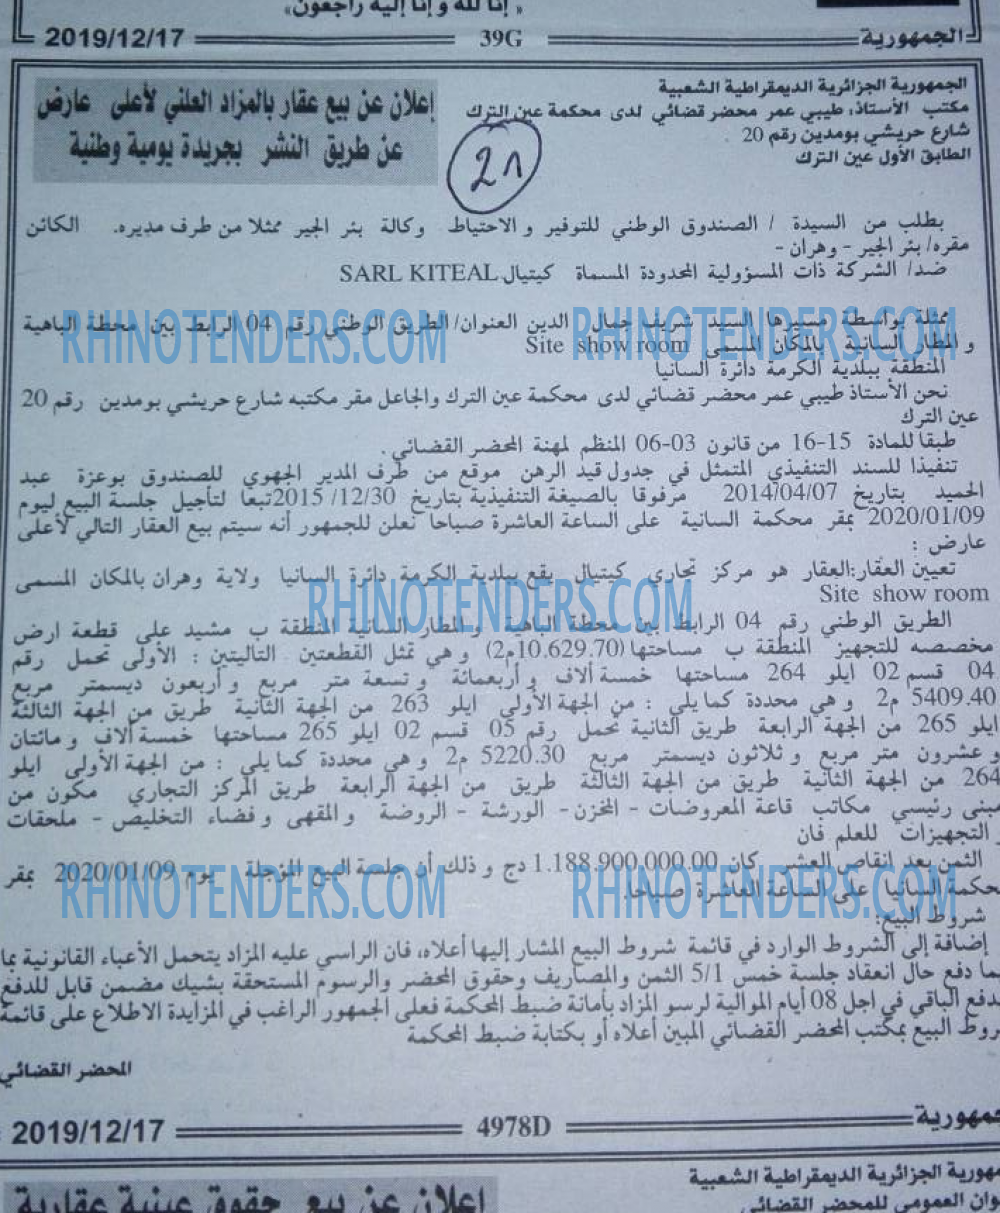 « إنا لله و إنا إليه راجعون»
الجمهورية 39G 2019/12/17
الجمهورية الجزائرية الديمقراطية الشعبية
مكتب الأستاذ، طيبي عمر محضر قضائي لدى محكمة عين الترك
شارع حريشي بومدين رقم 20 .
الطابق الأول عين الترك
إعلان عن بيع عقار بالمزاد العلني لأعلى عارض
عن طريق النشر بجريدة يومية وطنية
21
بطلب من السيدة / الصندوق الوطني للتوفير و الاحتياط وكالة بئر الجير ممثلا من طرف مديره. الكائن
مقره/ بئر الجير - وهران -
ضد/ الشركة ذات المسؤولية المحدودة المسماة كيتيال SARL KITEAL
ممثلة بواسطة مسيرها السيد شريف جمال الدين العنوان/ الطريق الوطني رقم 04 الرابط بين محطة الباهية
و المطار السانية بالمكان المسمى Site show room
المنطقة ببلدية الكرمة دائرة السانيا
نحن الأستاذ طيبي عمر محضر قضائي لدى محكمة عين الترك والجاعل مقر مكتبه شارع حريشي بومدين رقم 20
عين الترك
طبقا للمادة 15-16 من قانون 03-06 المنظم لمهنة المحضر القضائي .
تنفيذا للسند التنفيذي المتمثل في جدول قيد الرهن موقع من طرف المدير الجهوي للصندوق بوعزة عبد
الحميد بتاريخ 2014/04/07 مرفوقا بالصيغة التنفيذية بتاريخ 2015/12/30 تبعا لتأجيل جلسة البيع ليوم
2020/01/09 بمقر محكمة السانية على الساعة العاشرة صباحا نعلن للجمهور أنه سيتم بيع العقار التالي لأعلى
عارض :
تعيين العقار:العقار هو مركز تجاري كيتيال يقع ببلدية الكرمة دائرة السانيا ولاية وهران بالمكان المسمى
Site show room
الطريق الوطني رقم 04 الرابط بين محطة الباهية والمطار السانية المنطقة ب مشيد على قطعة ارض
مخصصه للتجهيز المنطقة ب مساحتها (10.629.70م2) و هي تمثل القطعتين التاليتين : الأولى تحمل رقم
04 قسم 02 ايلو 264 مساحتها خمسة ألاف و أربعمائة و تسعة متر مربع و أربعون ديسمتر مربع
5409.40 م2 و هي محددة كما يلي : من الجهة الأولى ايلو 263 من الجهة الثانية طريق من الجهة الثالثة
ايلو 265 من الجهة الرابعة طريق الثانية تحمل رقم 05 قسم 02 ايلو 265 مساحتها خمسة ألاف و مائتان
و عشرون متر مربع و ثلاثون ديسمتر مربع 5220.30 م2 و هي محددة كما يلي : من الجهة الأولى ايلو
264 من الجهة الثانية طريق من الجهة الثالثة طريق من الجهة الرابعة طريق المركز التجاري مكون من
مبنى رئيسي مكاتب قاعة المعروضات - المخزن - الورشة - الروضة و المقهى و فضاء التخليص - ملحقات
و التجهيزات للعلم فان
الثمن بعد إنقاص العشر كان 1.188.900.000.00 دج و ذلك أن جلسة البيع المؤجلة يوم 2020/01/09 بمقر
محكمة السانيا على الساعة العاشرة صباحا.
شروط البيع:
إضافة إلى الشروط الوارد في قائمة شروط البيع المشار إليها أعلاه، فان الراسي عليه المزاد يتحمل الأعباء القانونية بما
فيما دفع حال انعقاد جلسة خمس 5/1 الثمن والمصاريف وحقوق المحضر والرسوم المستحقة بشيك مضمن قابل للدفع
يدفع الباقي في اجل 08 أيام الموالية لرسو المزاد بأمانة ضبط المحكمة فعلى الجمهور الراغب في المزايدة الاطلاع على قائمة
شروط البيع بمكتب المحضر القضائي المبين أعلاه أو بكتابة ضبط المحكمة
المحضر القضائي
RHINOTENDERS.COM RHINOTENDERS.COM
RHINOTENDERS.COM
RHINOTENDERS.COM RHINOTENDERS.COM
الجمهورية 4978D 2019/12/17
الجمهورية الجزائرية الديمقراطية الشعبية
العمومي للمحضر القضائي
إعلان عن بيع حقوق عينية عقارية